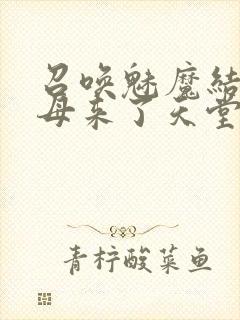 召唤魅魔结
母来了天堂
青柠酸菜鱼